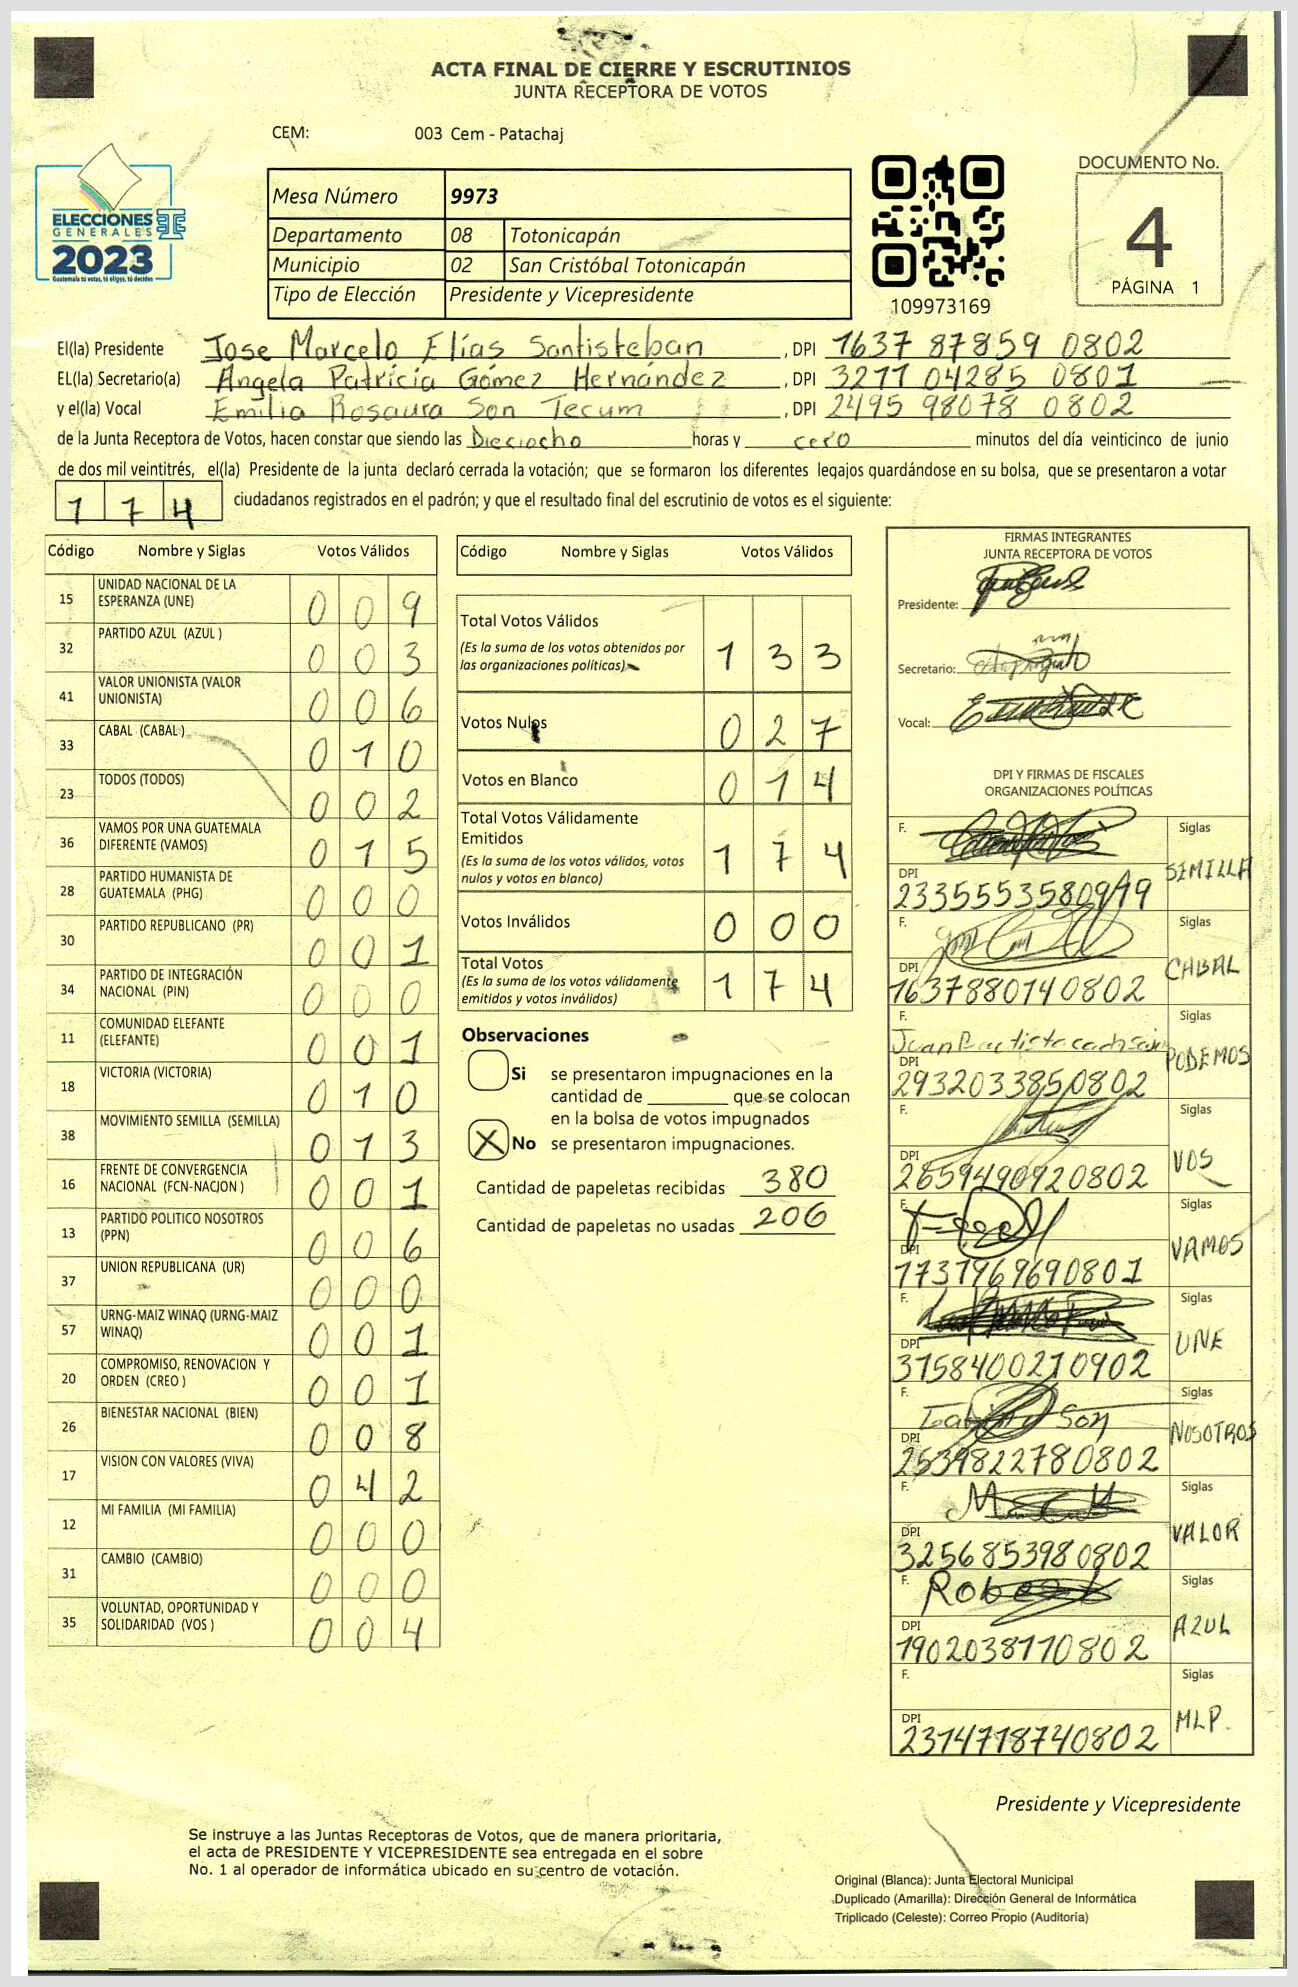 ACTA FINAL DE CIERRE Y ESCRUTINIOS
JUNTA RECEPTORA DE VOTOS
CEM: 003 Cem - Patachaj
ELECCIONES
GENERALES
2023
Guatemala tú votas, tú eliges, tú decides
Mesa Número 9973
Departamento 08 Totonicapán
Municipio 02 San Cristóbal Totonicapán
Tipo de Elección Presidente y Vicepresidente
109973169
DOCUMENTO No.
4
PÁGINA 1
El(la) Presidente Jose Marcelo Elías Santisteban , DPI 1637 87859 0802
EL(la) Secretario(a) Angela Patricia Gómez Hernández , DPI 3211 04285 0801
y el(la) Vocal Emilia Rosaura Son Tecum , DPI 2495 98078 0802
de la Junta Receptora de Votos, hacen constar que siendo las Dieciocho horas y cero minutos del día veinticinco de junio
de dos mil veintitrés, el(la) Presidente de la junta declaró cerrada la votación; que se formaron los diferentes legajos guardándose en su bolsa, que se presentaron a votar
174 ciudadanos registrados en el padrón; y que el resultado final del escrutinio de votos es el siguiente:
Código Nombre y Siglas Votos Válidos
15 UNIDAD NACIONAL DE LA ESPERANZA (UNE) 009
32 PARTIDO AZUL (AZUL ) 003
41 VALOR UNIONISTA (VALOR UNIONISTA) 006
33 CABAL (CABAL ) 010
23 TODOS (TODOS) 002
36 VAMOS POR UNA GUATEMALA DIFERENTE (VAMOS) 015
28 PARTIDO HUMANISTA DE GUATEMALA (PHG) 000
30 PARTIDO REPUBLICANO (PR) 001
34 PARTIDO DE INTEGRACIÓN NACIONAL (PIN) 000
11 COMUNIDAD ELEFANTE (ELEFANTE) 001
18 VICTORIA (VICTORIA) 010
38 MOVIMIENTO SEMILLA (SEMILLA) 013
16 FRENTE DE CONVERGENCIA NACIONAL (FCN-NACION ) 001
13 PARTIDO POLITICO NOSOTROS (PPN) 006
37 UNION REPUBLICANA (UR) 000
57 URNG-MAIZ WINAQ (URNG-MAIZ WINAQ) 001
20 COMPROMISO, RENOVACION Y ORDEN (CREO ) 001
26 BIENESTAR NACIONAL (BIEN) 008
17 VISION CON VALORES (VIVA) 042
12 MI FAMILIA (MI FAMILIA) 000
31 CAMBIO (CAMBIO) 000
35 VOLUNTAD, OPORTUNIDAD Y SOLIDARIDAD (VOS ) 004
Código Nombre y Siglas Votos Válidos
Total Votos Válidos 133
(Es la suma de los votos obtenidos por
las organizaciones políticas)
Votos Nulos 027
Votos en Blanco 014
Total Votos Válidamente
Emitidos 174
(Es la suma de los votos válidos, votos
nulos y votos en blanco)
Votos Inválidos 000
Total Votos 174
(Es la suma de los votos válidamente
emitidos y votos inválidos)
Observaciones
Si se presentaron impugnaciones en la
cantidad de ________ que se colocan
en la bolsa de votos impugnados
X No se presentaron impugnaciones.
Cantidad de papeletas recibidas 380
Cantidad de papeletas no usadas 206
FIRMAS INTEGRANTES
JUNTA RECEPTORA DE VOTOS
Presidente:
Secretario:
Vocal:
DPI Y FIRMAS DE FISCALES
ORGANIZACIONES POLÍTICAS
F. Siglas SEMILLA
DPI
F. Siglas CABAL
DPI 1637880140802
F. Juan Bautista Siglas PODEMOS
DPI 2932033850802
F. VOS
DPI 2659490920802
F. Siglas VAMOS
DPI 1737969690801
F. Siglas UNE
DPI 3158400210902
F. Son Siglas NOSOTROS
2539822780802
F. Siglas VALOR
DPI 3256853980802
F. Siglas AZUL
DPI 1902038110802
F. Siglas MLP.
DPI 2314718740802
Presidente y Vicepresidente
Se instruye a las Juntas Receptoras de Votos, que de manera prioritaria,
el acta de PRESIDENTE Y VICEPRESIDENTE sea entregada en el sobre
No. 1 al operador de informática ubicado en su centro de votación.
Original (Blanca): Junta Electoral Municipal
Duplicado (Amarilla): Dirección General de Informática
Triplicado (Celeste): Correo Propio (Auditoría)